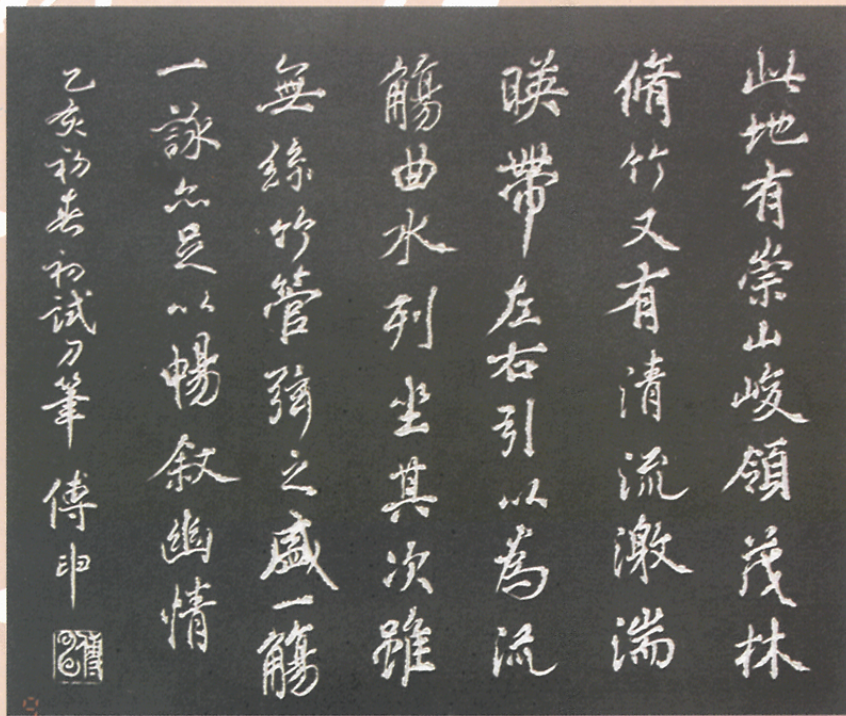 此地有崇山峻領茂林
脩竹又有清流激湍
暎帶左右引以為流
觴曲水列坐其次雖
無絲竹管弦之盛一觴
一詠亦足以暢叙幽情
乙亥初春初試刀筆 傅申